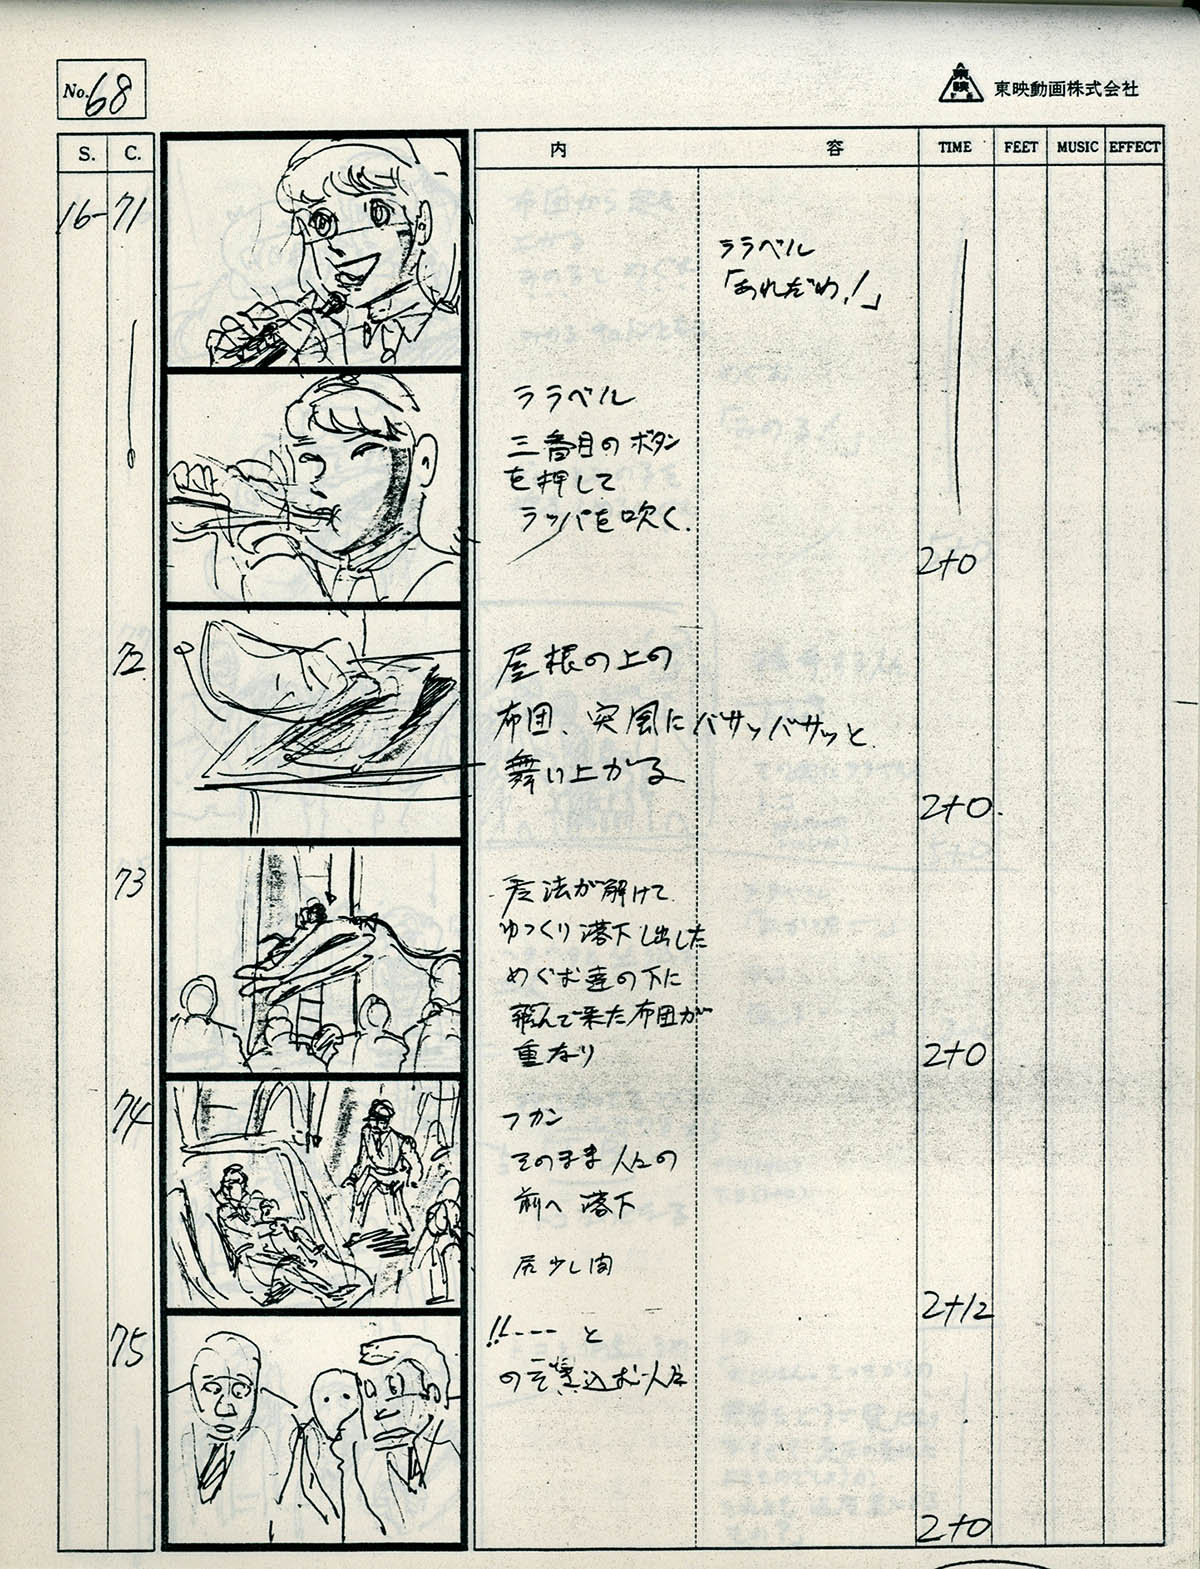 No. 68
東映
東映動画株式会社
S. C. 内 容 TIME FEET MUSIC EFFECT
16-71
ララベル
「あれだわ!」
ララベル
三番目のボタン
を押して
ラッパを吹く.
2+0
72
屋根の上の
布団、突風にバサッバサッと
舞い上がる
2+0.
73
法が解けて
ゆっくり落下し出した
めぐみ達の下に
飛んで来た布団が
重なり
2+0
74
フカン
そのまま人々の
前へ落下
尻少し間
2+12
75
!!---- と
のぞき込む人々
2+0